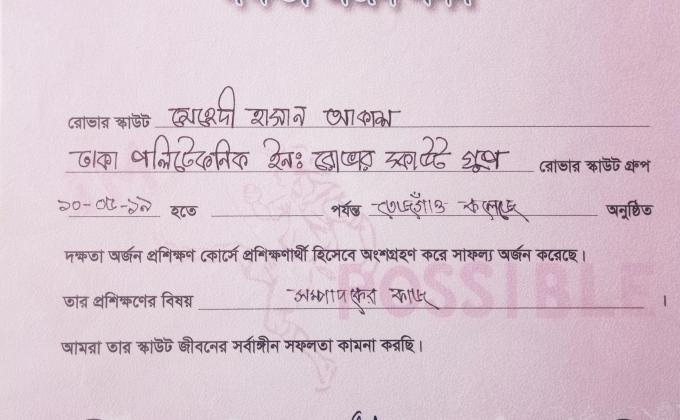 রোভার স্কাউট মেহেদী হাসান আকাশ
ঢাকা পলিটেকনিক ইনঃ রোভার স্কাউট গ্রুপ রোভার স্কাউট গ্রুপ
১০-০৫-১৯ হতে পর্যন্ত তেজগাঁও কলেজে অনুষ্ঠিত
দক্ষতা অর্জন প্রশিক্ষণ কোর্সে প্রশিক্ষণার্থী হিসেবে অংশগ্রহণ করে সাফল্য অর্জন করেছে।
তার প্রশিক্ষণের বিষয় কাজ।
আমরা তার স্কাউট জীবনের সর্বাঙ্গীন সফলতা কামনা করছি।
POSSIBLE